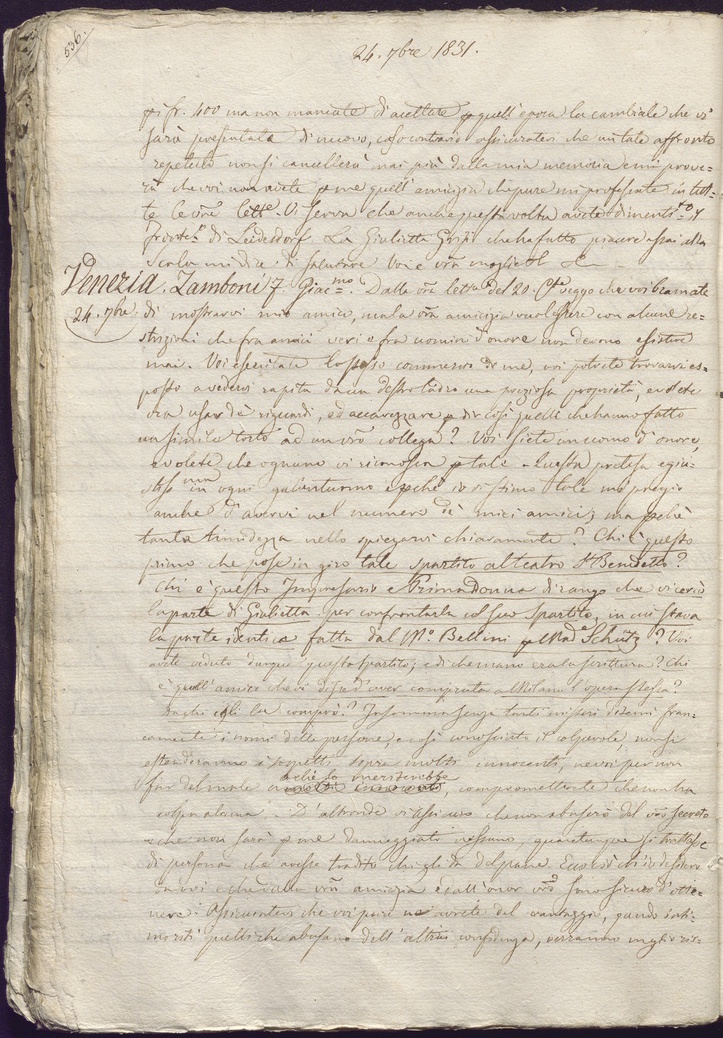 536.
24. 7bre 1831.
pi fr. 400 ma non mancate di accettare p quell'epoca la cambiale che vi
sarà presentata di nuovo, caso contrario assicuratevi che un tale affronto
repetuto non si cancellerà mai più dalla mia memoria e mi prove-
rà che voi non avete p me quell'amicizia che pure mi professate in tut-
te le vre lettre. Vi serva che anche questa volta avete diment.to il
di Leidesdorf. La Giulietta Grisi che ha fatto piacere assai alla
Scala mi dice di salutare Voi e vra moglie
Venezia. Zamboni f. Giac.mo. Dalla vra lettra del 20. C.te veggo che voi bramate
24. 7bre. di mostrarvi mio amico, ma la vra amicizia vuol essere con alcune re-
strizioni che fra amici veri e fra uomini d'onore non devono esistere
mai. Voi esercitate lo stesso commercio di me, voi potrete trovarvi es-
posto a vedervi rapita da un destro ladro una preziosa proprietà, e volete
ora usar dei riguardi, ed accarezzare p dir così quelli che hanno fatto
un simile torto ad un vro collega? Voi siete un uomo d'onore,
e volete che ognuno vi riconosca p tale. Questa pretesa è giu-
stiss.ma in ogni galantuomo e pchè io vi stimo tale mi pregio
anche d'avervi nel numero de' miei amici; ma pchè
tanta timidezza nello spiegarvi chiaramente? Chi è questo
primo che pose in giro tale spartito al teatro S. Benedetto?
Chi è questo Impresario e Prima Donna di rango che vi cercò
la parte di Giulietta per confrontarla col suo Spartito, in cui stava
la parte identica fatta dal M.o Bellini p Mad.e Schütz? Voi
avete veduto dunque questo spartito; e di che mano era la scrittura? Chi
è quell'amico che vi disse d'aver comprata a Milano l'opera stessa?
Da chi egli la comprò? Insomma senza tanti misteri ditemi fran-
camente i nomi delle persone, e così conosciuto il colpevole, non si
estenderanno i sospetti sopra molti innocenti, nè voi per non
far del male a chi lo meriterebbe, comprometterete chi non ha
colpa alcuna. D'altronde vi assicuro che non abuserò del vro secreto
e che non sarà p me danneggiato nessuno, quantunque si trattasse
di persona che avesse tradito chi gli dà del pane. Ecco ciò ch'io desidero
da voi e che dalla vra amicizia e dall'onor vro sono sicuro d'otte-
nere. Assicuratevi che voi pure ne avrete del vantaggio, quando inti-
moriti quelli che abusano dell'altrui confidenza, verranno meglio ris-